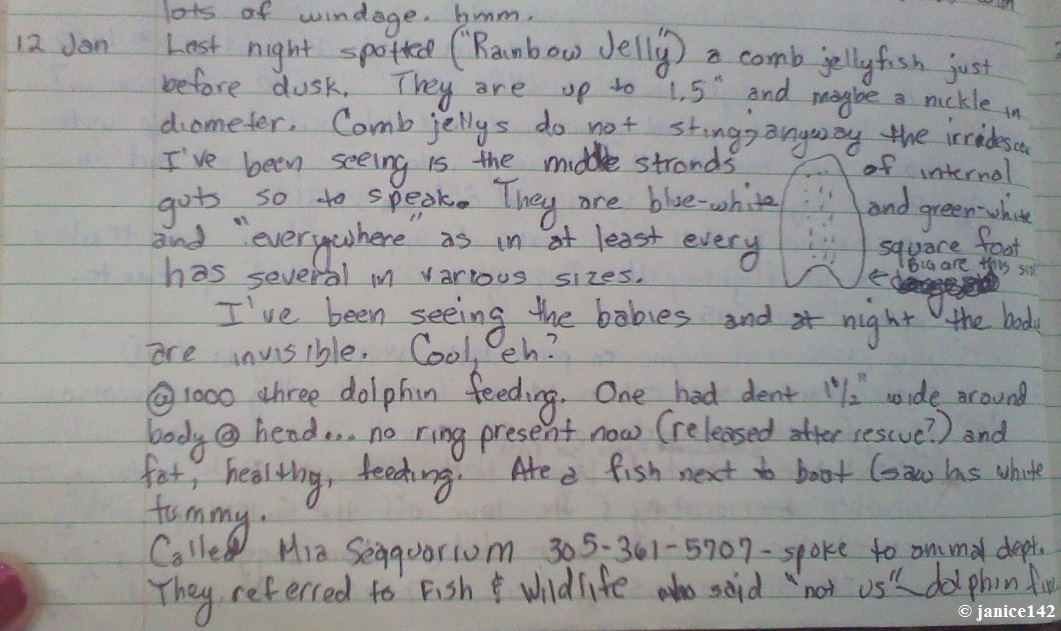 lots of windage. hmm.
12 Jan Last night spotted ("Rainbow Jelly") a comb jellyfish just
before dusk. They are up to 1.5" and maybe a nickle in
diameter. Comb jellys do not sting; anyway the
I've been seeing is the middle strands of internal
guts so to speak. They are blue-white and green-white
and "everywhere" as in at least every square foot
has several in various sizes. ← Big are this
I've been seeing the babies and at night the body
are invisible. Cool, eh?
@ 1000 three dolphin feeding. One had dent 1 1/2" wide around
body @ head... no ring present now (released after rescue?) and
fat, healthy, feeding. Ate a fish next to boat (saw his white
tummy.
Called Mia Seaquarium 305-361-5707 - spoke to animal dept.
They referred to Fish & Wildlife who said "not us" dolphin
© janice142